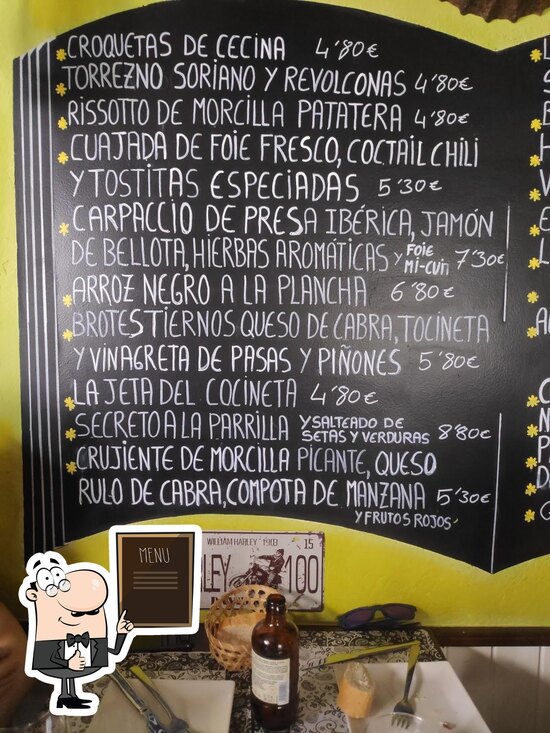 CROQUETAS DE CECINA 4'80€
TORREZNO SORIANO Y REVOLCONAS 4'80€
RISSOTTO DE MORCILLA PATATERA 4'80€
CUAJADA DE FOIE FRESCO, COCTAIL CHILI
Y TOSTITAS ESPECIADAS 5'30€
CARPACCIO DE PRESA IBÉRICA, JAMÓN
DE BELLOTA, HIERBAS AROMÁTICAS Y FOIE MI-CUIT 7'30€
ARROZ NEGRO A LA PLANCHA 6'80€
BROTES TIERNOS QUESO DE CABRA, TOCINETA
Y VINAGRETA DE PASAS Y PIÑONES 5'80€
LA JETA DEL COCINETA 4'80€
SECRETO A LA PARRILLA Y SALTEADO DE SETAS Y VERDURAS 8'80€
CRUJIENTE DE MORCILLA PICANTE, QUESO
RULO DE CABRA, COMPOTA DE MANZANA 5'30€
Y FRUTOS ROJOS
WILLIAM HARLEY 1903 15
LEY 100
MENU